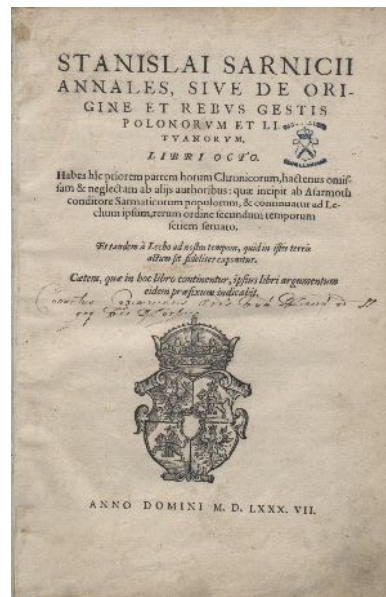 STANISLAI SARNICII
ANNALES, SIVE DE ORI-
GINE ET REBVS GESTIS
POLONORVM ET LI-
TVANORVM,
LIBRI OCTO.
Habes hîc priorem partem horum Chronicorum, hactenus omis-
sam & neglectam ab alijs authoribus: quæ incipit ab Asarmoth
conditore Sarmaticorum populorum, & continuatur ad Le-
chum ipsum, rerum ordine secundum temporum
seriem seruato.
Et tandem à Lecho ad nostra tempora, quid in istis terris
actum sit fideliter exponitur.
Cætera, quæ in hoc libro continentur, ipsius libri argumentum
eidem præfixum indicabit.
ANNO DOMINI M. D. LXXX. VII.